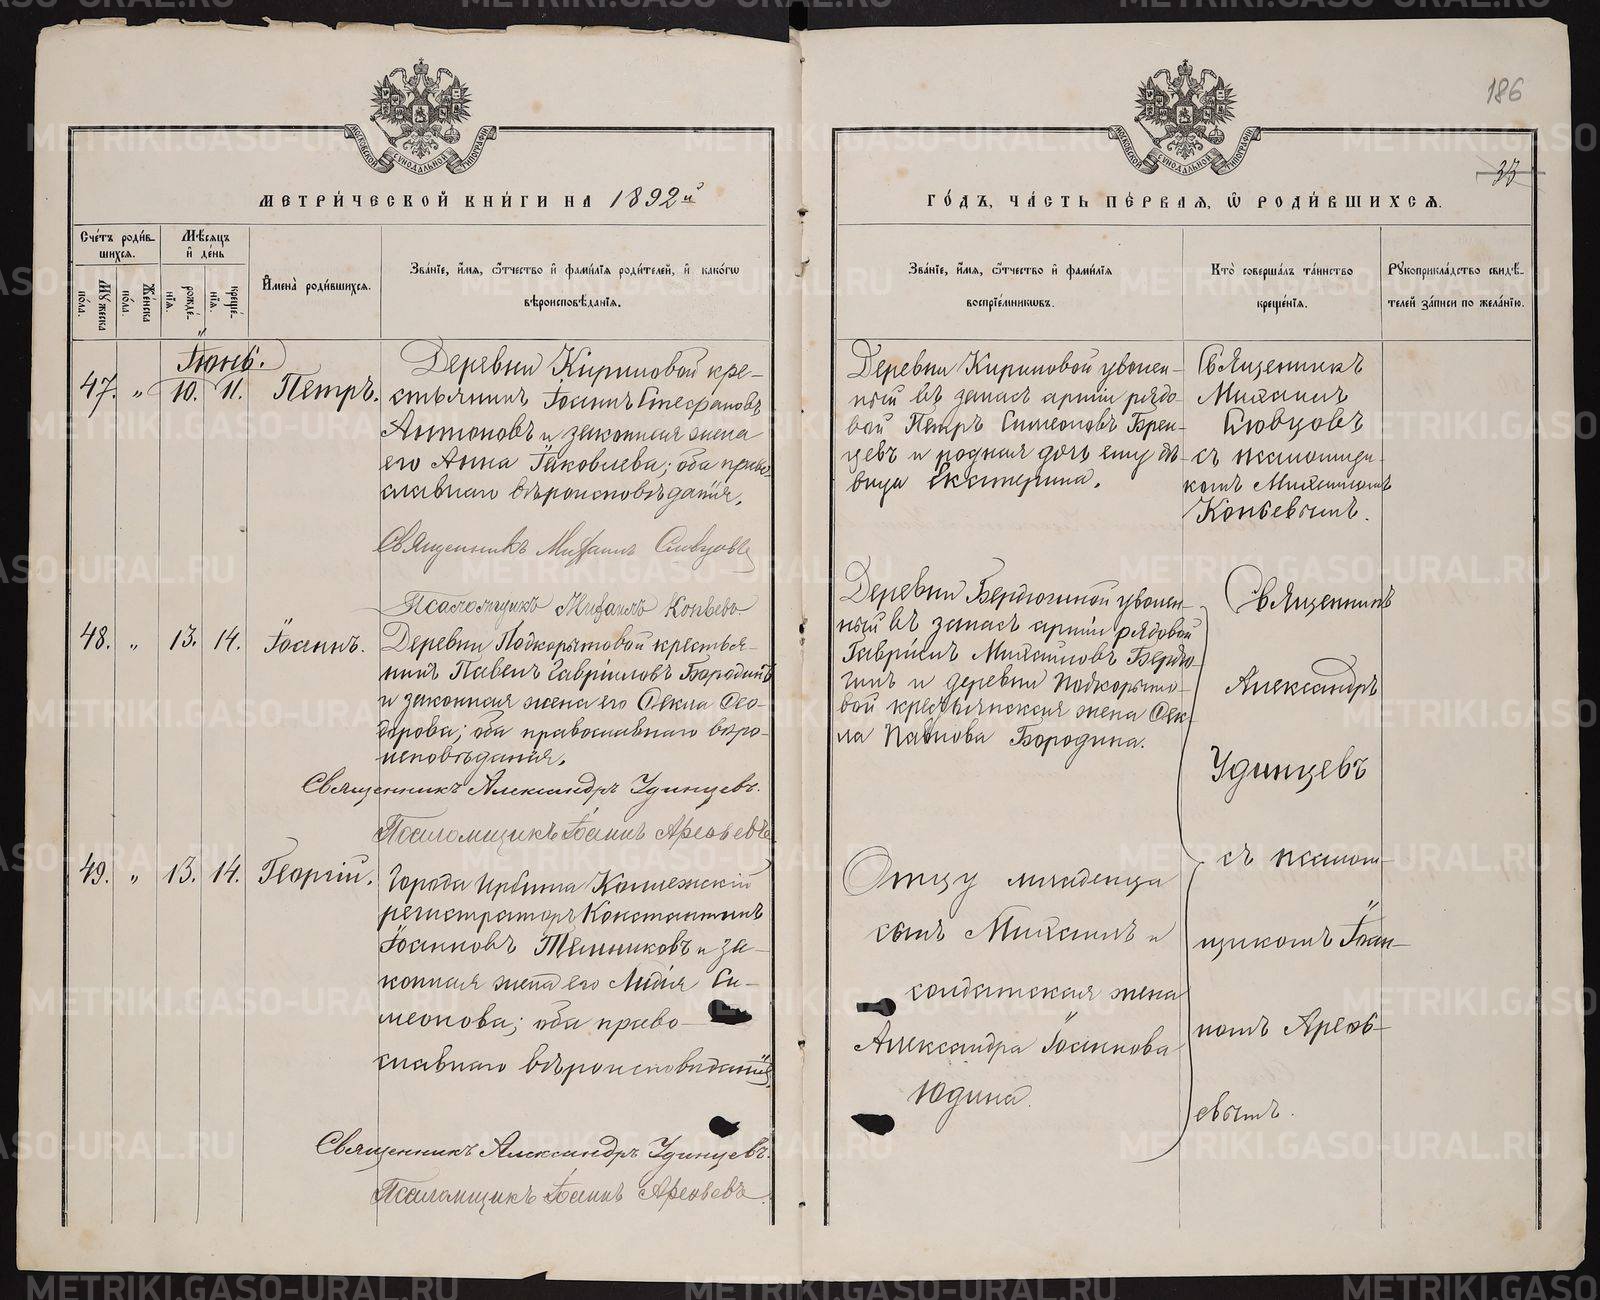 МОСКОВСКОЙ СѴНОДАЛЬНОЙ ТИПОГРАФІИ
МЕТРИ́ЧЕСКОЙ КНИ́ГИ НА 1892й
Сче́тъ роди́в-
шихся.
Мꙋжеска по́ла.
Же́нска по́ла.
Мѣ́сяцъ и҆ де́нь
рожде́-нїя.
креще́-нїя.
И҆мена̀ роди́вшихся.
Зва́нїе, и҆́мя, ѻ҆́тчество и҆ фами́лїя роди́телей, и҆ како́гѡ
вѣроисповѣ́данїя.
Іюнь.
47. „ 10. 11. Петръ.
Деревни Кириловой кре-
стьянинъ Іоаннъ Стефановъ
Антоновъ и законная жена
его Анна Іаковлева; оба право-
славнаго вѣроисповѣданія.
Священникъ Михаилъ Словцовъ
Псаломщикъ Михаилъ Копьевъ
48. „ 13. 14. Іоаннъ.
Деревни Подкорытовой крестья-
нинъ Павелъ Гавріиловъ Бородинъ
и законная жена его Ѳекла Ѳео-
дорова; оба православнаго вѣро-
исповѣданія.
Священникъ Александръ Удинцевъ.
Псаломщикъ Іоаннъ Арефьевъ
49. „ 13. 14. Георгій.
Города Ирбита Коллежскій
регистраторъ Константинъ
Іоанновъ Тельниковъ и за-
конная жена его Лидія Си-
меонова; оба право-
славнаго вѣроисповѣданія.
Священникъ Александръ Удинцевъ.
Псаломщикъ Іоаннъ Арефьевъ.
186
33
МОСКОВСКОЙ СѴНОДАЛЬНОЙ ТИПОГРАФІИ
ГО́ДЪ, ЧА́СТЬ ПЕ́РВАЯ, Ѡ҆ РОДИ́ВШИХСЯ.
Зва́нїе, и҆́мя, ѻ҆́тчество и҆ фами́лїя
воспрїе́мниковъ.
Кто̀ соверша́лъ та́инство
креще́нїя.
Рꙋкоприкла́дство свидѣ́-
телей за́писи по жела́нїю.
Деревни Кириловой уволен-
ный въ запасъ арміи рядо-
вой Петръ Симеоновъ Брен-
цевъ и родная дочь ему дѣ-
вица Екатерина.
Священникъ
Михаилъ
Словцовъ
съ псаломщи-
комъ Михаиломъ
Копьевымъ.
Деревни Бердюгиной уволен-
ный въ запасъ арміи рядовой
Гавріилъ Михаиловъ Бердю-
гинъ и деревни Подкорыто-
вой крестьянская жена Ѳек-
ла Павлова Бородина.
Священникъ
Александръ
Удинцевъ
съ псалом-
щикомъ Іоан-
номъ Ареѳь-
евымъ.
Отцу младенца
сынъ Михаилъ и
солдатская жена
Александра Іоаннова
Юдина.
METRIKI.GASO-URAL.RU